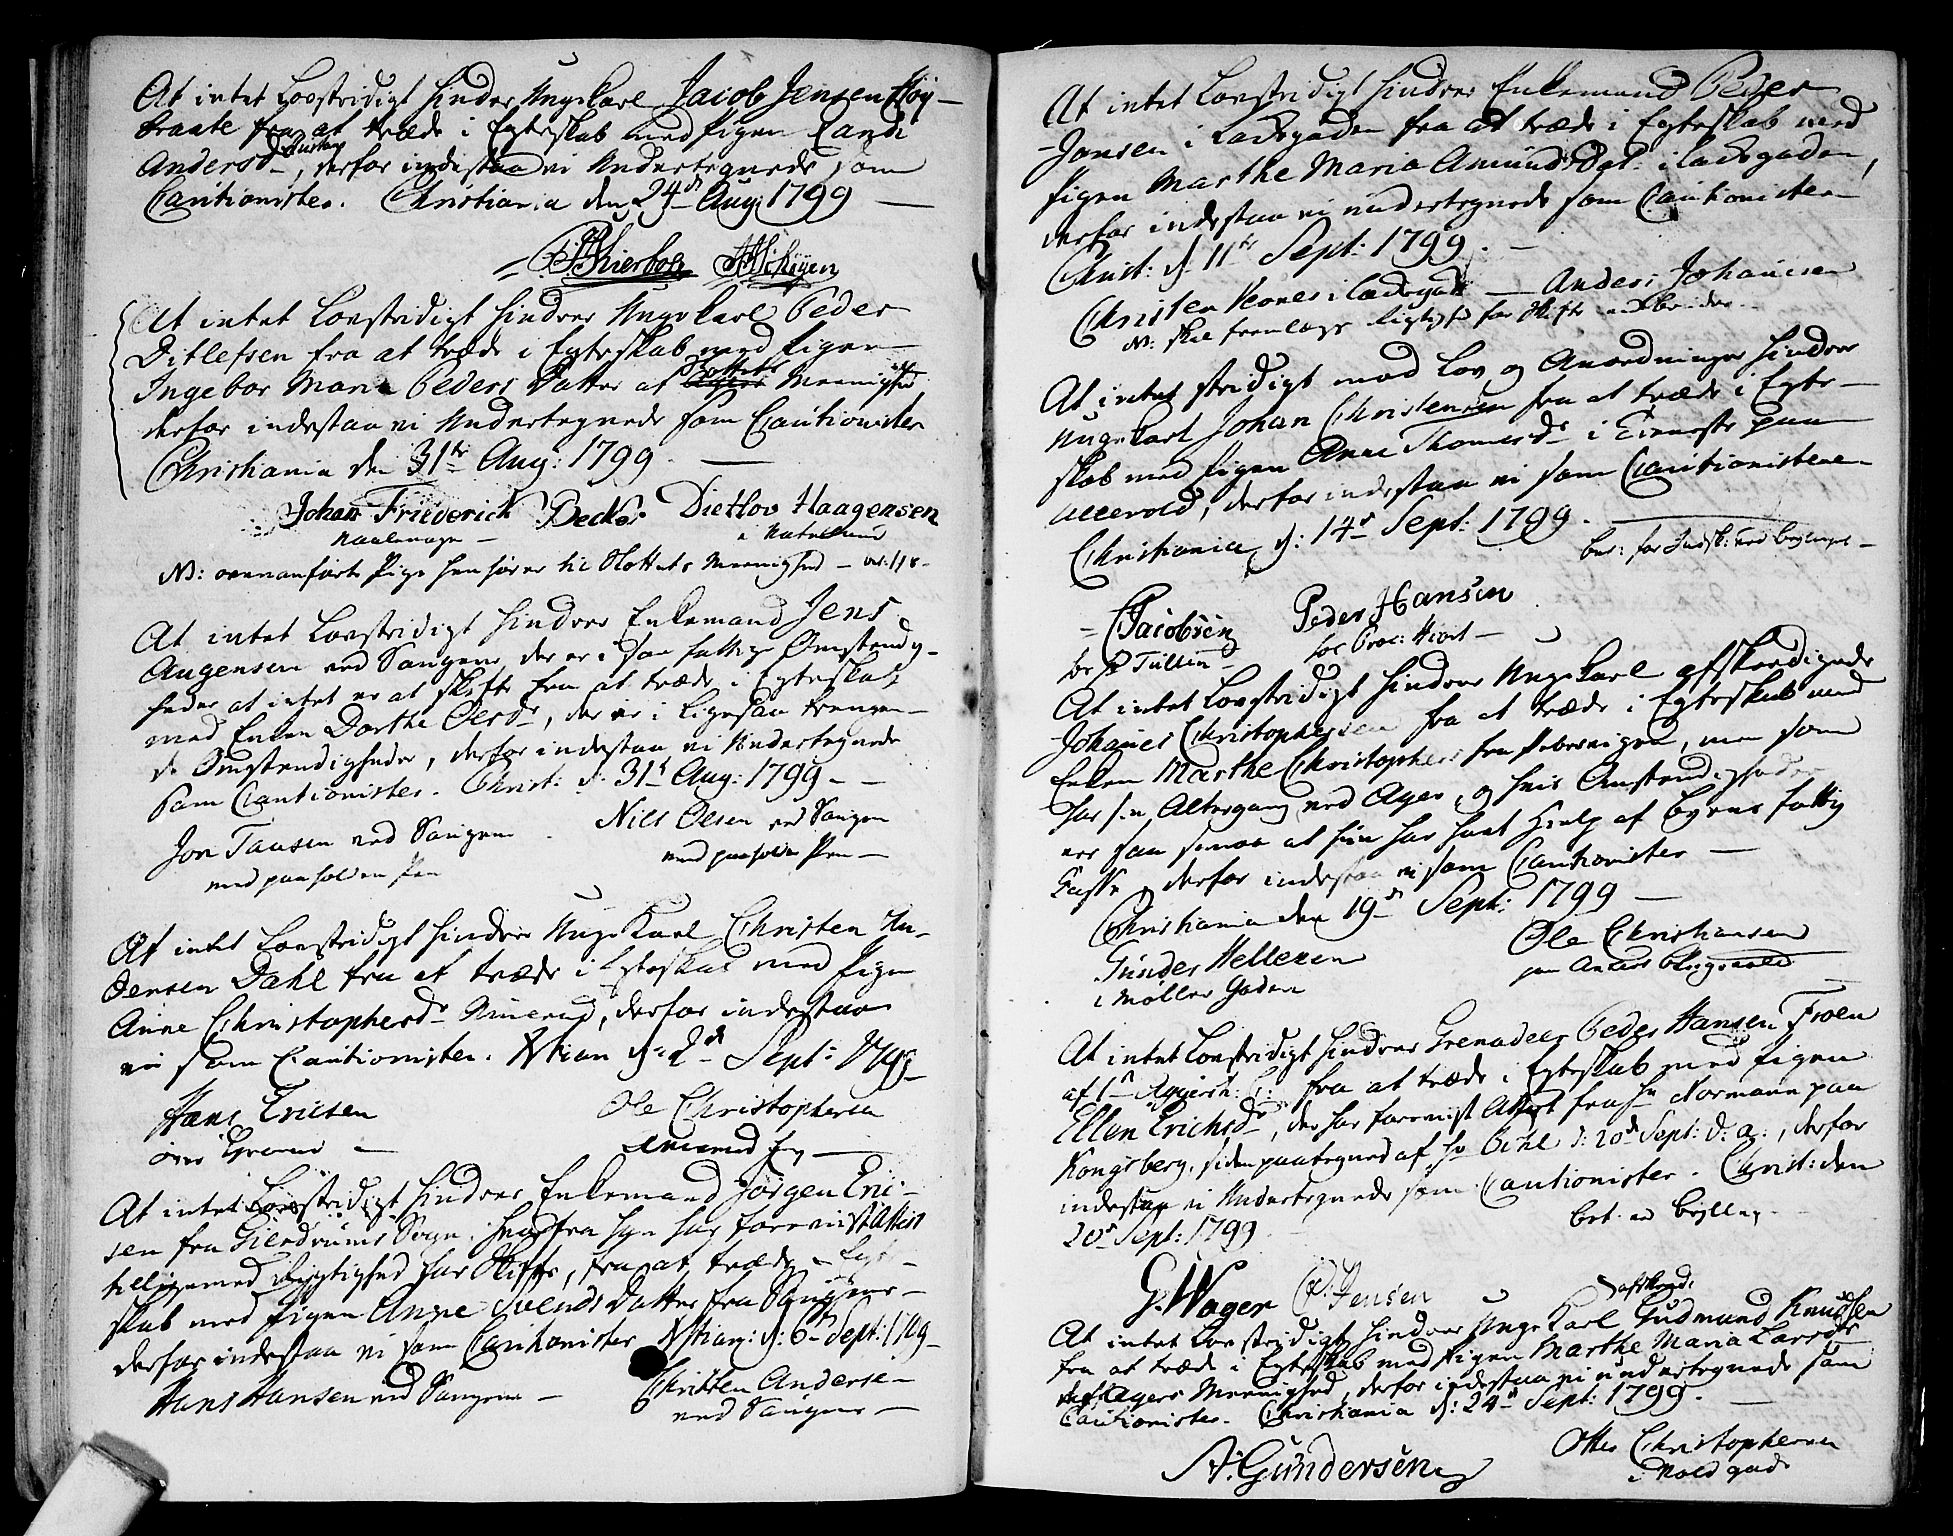 At intet Lovstridigt hindrer Ungekarl Jacob Jensen Høy-
braate fra at træde i Egteskab med Pigen Randi
Andersd, derfor indestaa vi Undertegnede som
Cautionister. Christiania den 24d Aug: 1799
At intet Lovstridigt hindrer Ungekarl Peder
Ditlefsen fra at træde i Egteskab med Pigen
Ingebor Maria Peders Datter af Slottets Meenighed
derfor indestaa vi Undertegnede som Cautionister
Christiania den 31te Aug: 1799.
Johan Friederich Becker Dietlov Haagensen
NB: ovenanførte Pige henhører til Slottets Meenighed
At intet Lovstridigt hindrer Enkemand Jens
Augensen ved Saugene, der er i saa fattige Omstændig-
heder at intet er at skifte fra at træde i Egteskab
med Enken Dorthe Olesd, der er i ligesaa trængen-
de Omstændigheder, derfor indestaa vi Undertegnede
som Cautionister. Christ: d: 31t Aug: 1799
Jon Tansen ved Saugene Nils Olsen ved Saugen
med paaholden Pen med paaholden Pen
At intet Lovstridigt hindrer Unge Karl Christen An-
dersen Dahl fra at træde i Egteskab med Pigen
Anne Christophersd, derfor indestaar
vi som Cautionister. Xtian d: 2d Sept: 1799
Hans Ericsen Ole Christophersen
At intet Lovstridigt hindrer Enkemand Jørgen Eric-
sen fra Gierdrums Sogn, hvorfra han har foreviist Attest
tilligemed Rigtighed for Skifte, fra at træde i Egte-
skab med Pigen Anne Svends Datter fra Saugene
derfor indestaa vi som Cautionister Xtian: d: 6te Sept: 1799
Hans Hansen ved Saugene Christen Andersen
ved Saugene
At intet Lovstridigt hindrer Enkemand Peder
Jonsen i Ladegaden fra at træde i Egteskab med
Pigen Marthe Maria AmundsDat: i Ladegaden,
derfor indestaa vi undertegnede som Cautionister
Christ: d: 11te Sept: 1799.
Christen i Ladegad Anders Johannesen
NB: skal fremlægge Rigtighed for Skifte
At intet stridigt mod Lov og Anordninger hindrer
Ungekarl Johan Christensen fra at træde i Egte-
skab med Pigen Anne Thomesd i paa
Ullevold, derfor indestaa vi som Cautionister
Christiania, d: 14d Sept: 1799.
PJacobsen Peder Hansen
for P Tullin for Proc: Hiort
At intet Lovstridigt hindrer Ungekarl afskeedigede
Johanes Christophersen fra at træde i Egteskab med
Enken Marthe Christophers: fra Pebervigen, men som
har sin Altergang ved Ager, og hvis Omstændigheder
er saa smaa at hun har havt Hielp af Byens fattig
Casse, derfor indestaa vi som Cautionister
Christiania den 19d Sept: 1799
Gunder Helleren Ole Christiansen
i Møller Gaden
At intet Lovstridigt hindrer Grenadeer Peder Hansen Froen
af 1te Aggersh: fra at træde i Egteskab med Pigen
Ellen Erichsd, der har foreviist Attest fra Hr Normann paa
Kongsberg, siden paategned af Hr Bihl d: 20d Sept: d: a:, derfor
indestaa vi Undertegnede som Cautionister. Christ: den
20d Sept: 1799
G. Wager P: Jensen
afskeed:
At intet Lovstridigt hindrer Unge Karl Gudmund Knudsen
fra at træde i Egteskab med Pigen Marthe Maria Larsdr
af Agers Meenighed, derfor indestaa vi undertegnede som
Cautionister. Christiania d: 24d Sept: 1799.
A: Gundersen Otter Christophersen
i Voldgade